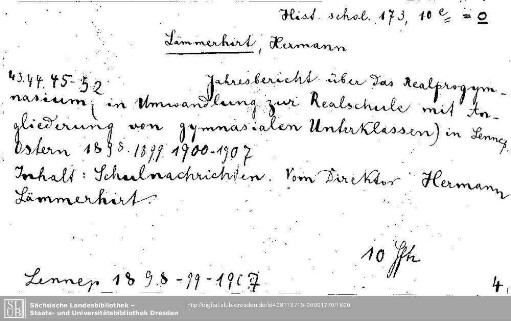 Hist. schol. 173, 10 e = 0
Lämmerhirt, Hermann
43.44.45-52 Jahresbericht über das Realprogym-
nasium (in Umwandlung zur Realschule mit An-
gliederung von gymnasialen Unterklassen) in Lennep.
Ostern 1898. 1899. 1900-1907
Inhalt: Schulnachrichten. Vom Direktor Hermann
Lämmerhirt.
10
Lennep 1898-99-1907 4.
Sächsische Landesbibliothek –
Staats- und Universitätsbibliothek Dresden